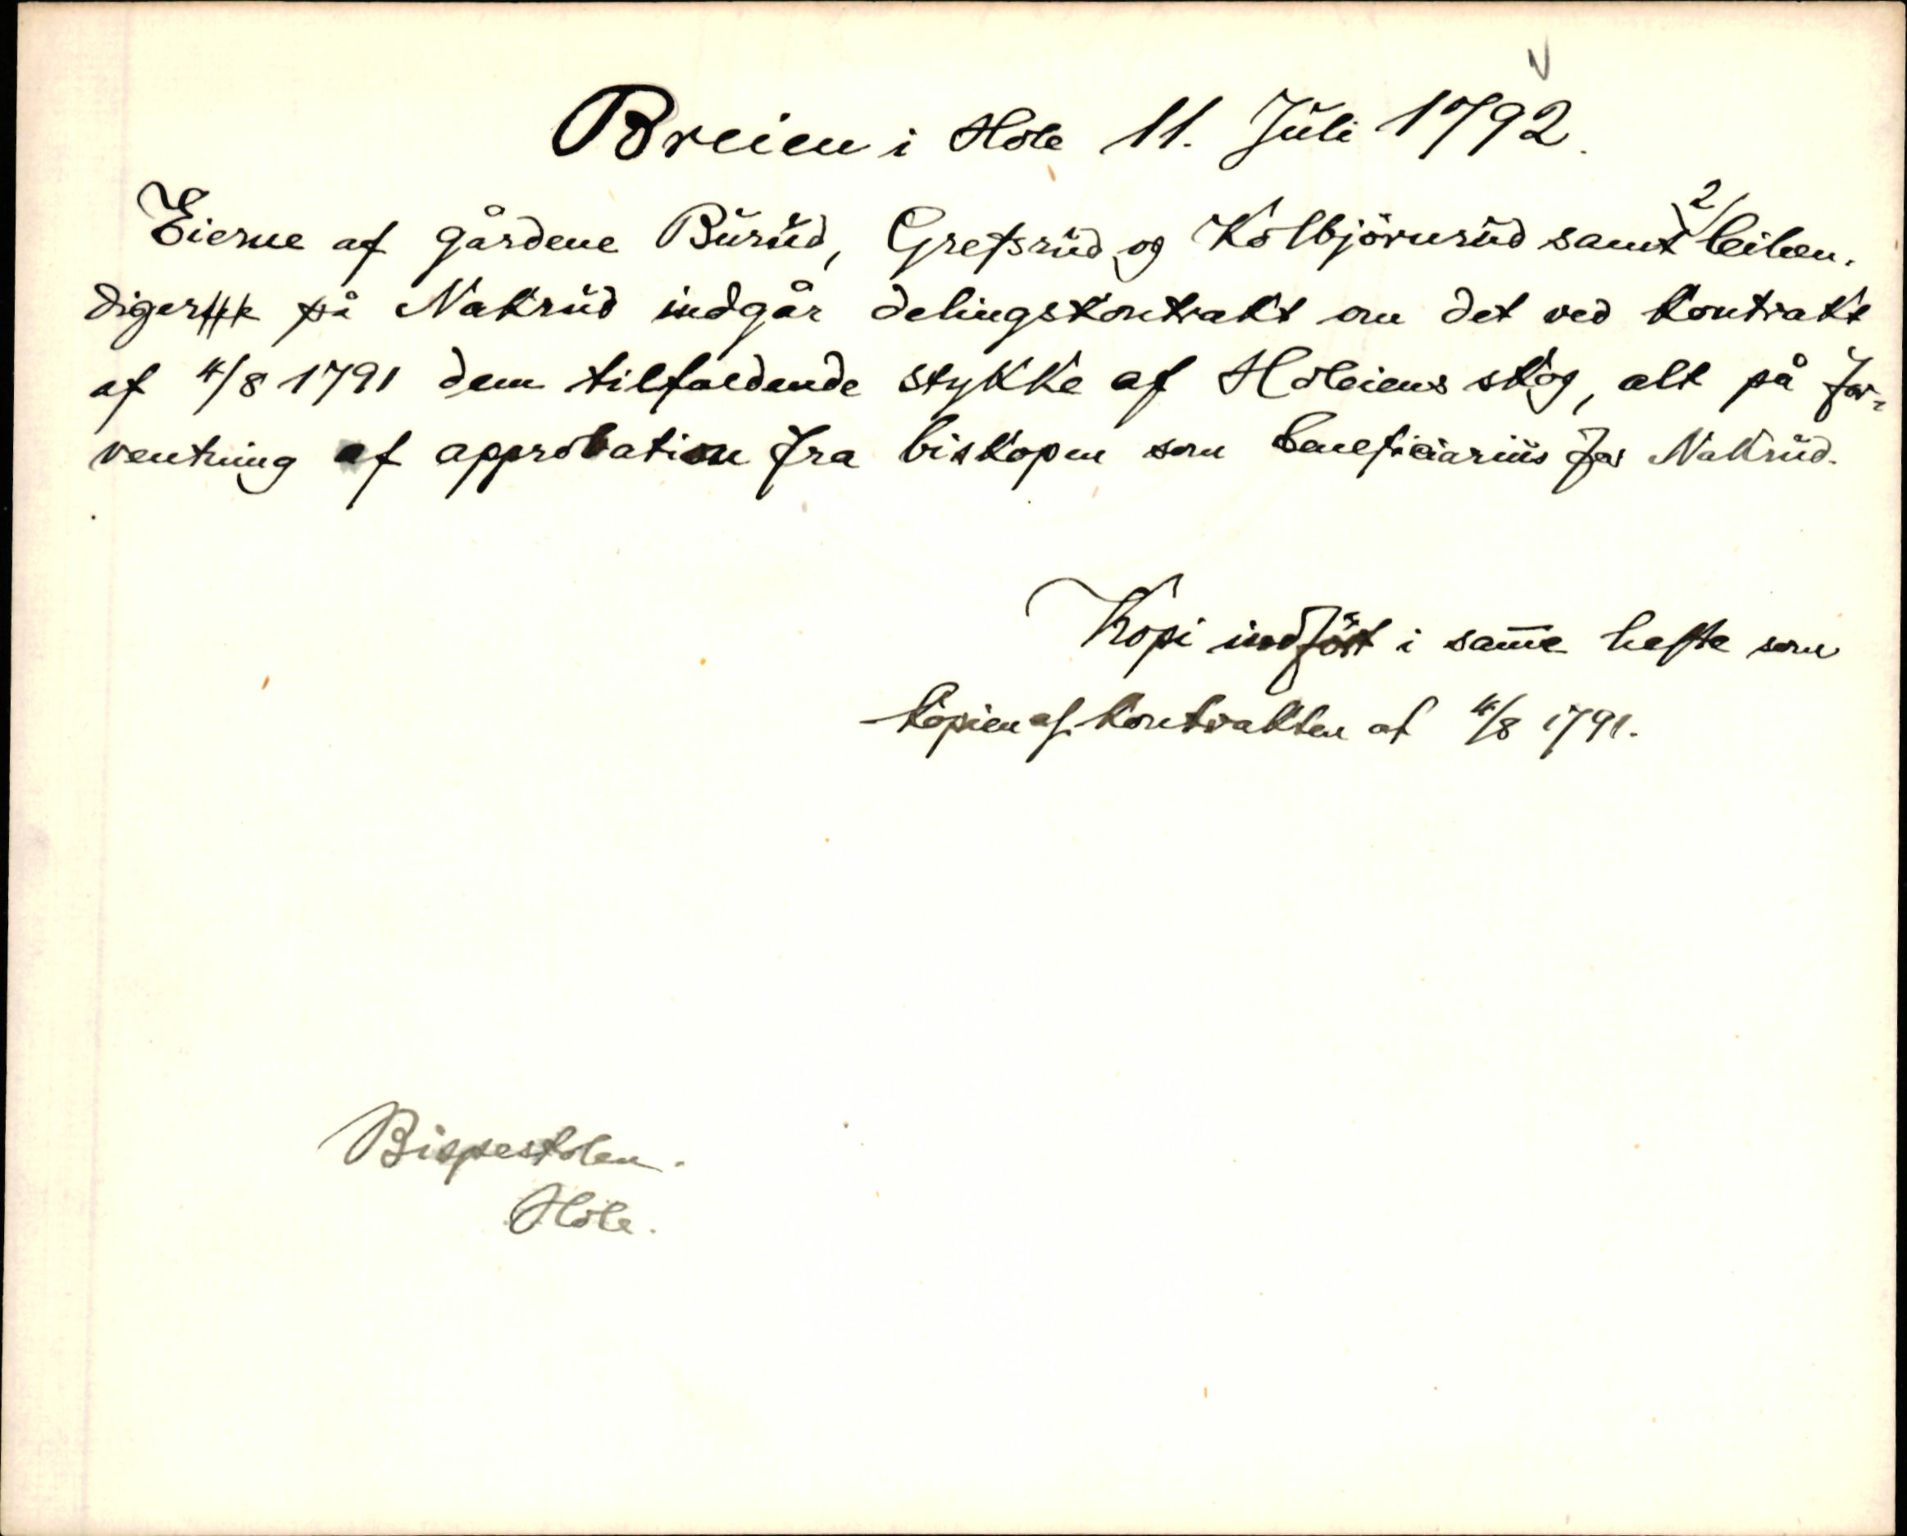 Breien i Hole 11. Juli 1792.
Eierne af gårdene Burud, Grefsrud og Kolbjörnsrud samt 2 leilæn-
diger på Nakrud indgår delingskontrakt om det ved kontrakt
af 4/8 1791 dem tilfaldende stykke af Holeiens skog, alt på for-
ventning af approbation fra biskopen som beneficiarius for Nakrud.
Kopi indfört i same hefte som
kopien af kontrakten af 4/8 1791.
Bispestolen.
Hole.